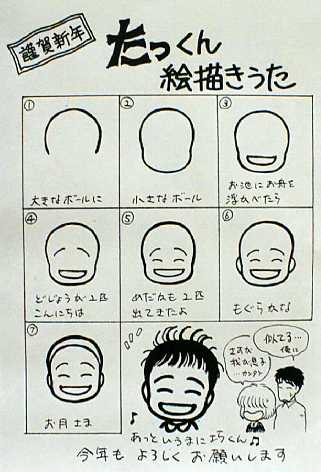 謹賀新年
たっくん
絵描きうた
①
大きなボールに
②
小さなボール
③
お池にお舟を
浮かべたら
④
どじょうが2匹
こんにちは
⑤
めだかも2匹
出てきたよ
⑥
もぐらかな
⑦
お月さま
あっというまに
くん♫
さすが
私の息子
似てる…
俺に
今年も よろしく お願いします